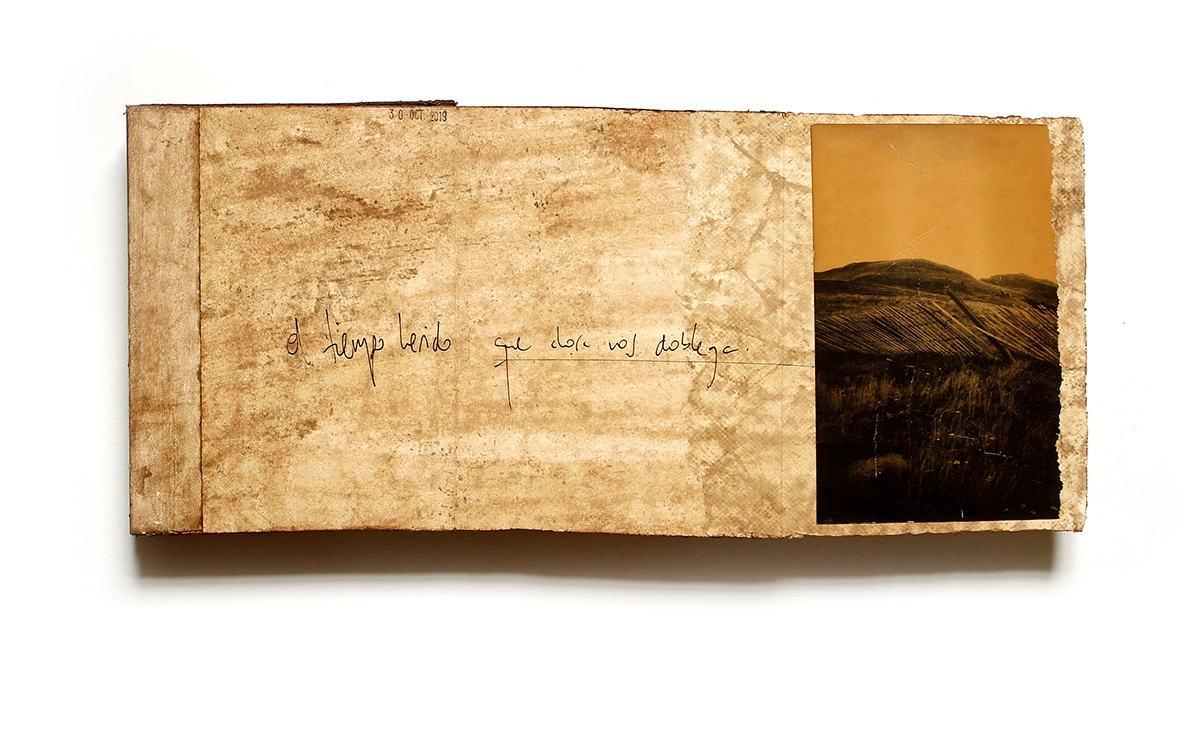 30 OCT. 2019
el tiempo herido que nos doblega.